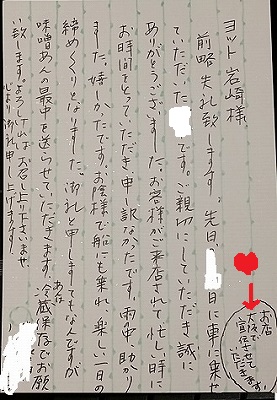 ヨット岩崎様
前略失礼致します。先日、日に車に乗せ
ていただいたです。ご親切にしていただき誠に
ありがとうございました。お客様がご来店されて忙しい時に
お時間をとっていただき申し訳なかったです。雨中、助かり
ました。嬉しかったです。お陰様で船にも乗れ、楽しい一日の
締めくくりとなりました。御礼と申しましてもなんですが
味噌あんの最中を送らせていただきます。冷蔵保存でお願
い致します。よろしければお召し上り下さいませ
心より御礼申し上げます。
お店
大阪で
宣伝させて
いただきます。